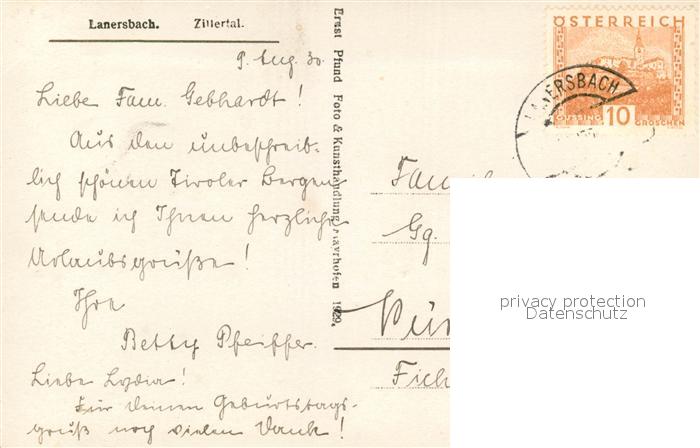 Lanersbach. Zillertal.
9. Aug. 30.
Liebe Fam. Gebhardt!
Aus den unbeschreib-
lich schönen Tiroler Bergen
sende ich Ihnen herzliche
Urlaubsgrüße!
Ihre
Betty Pfeiffer.
Liebe Lydia!
Für deinen Geburtstags-
gruß noch vielen Dank!
Ernst Pfund Foto & Kunsthandlung Mayrhofen 1929.
ÖSTERREICH
GÜSSING 10 GROSCHEN
LANERSBACH
Fam
Gg.
Nür
Fich
privacy protection
Datenschutz